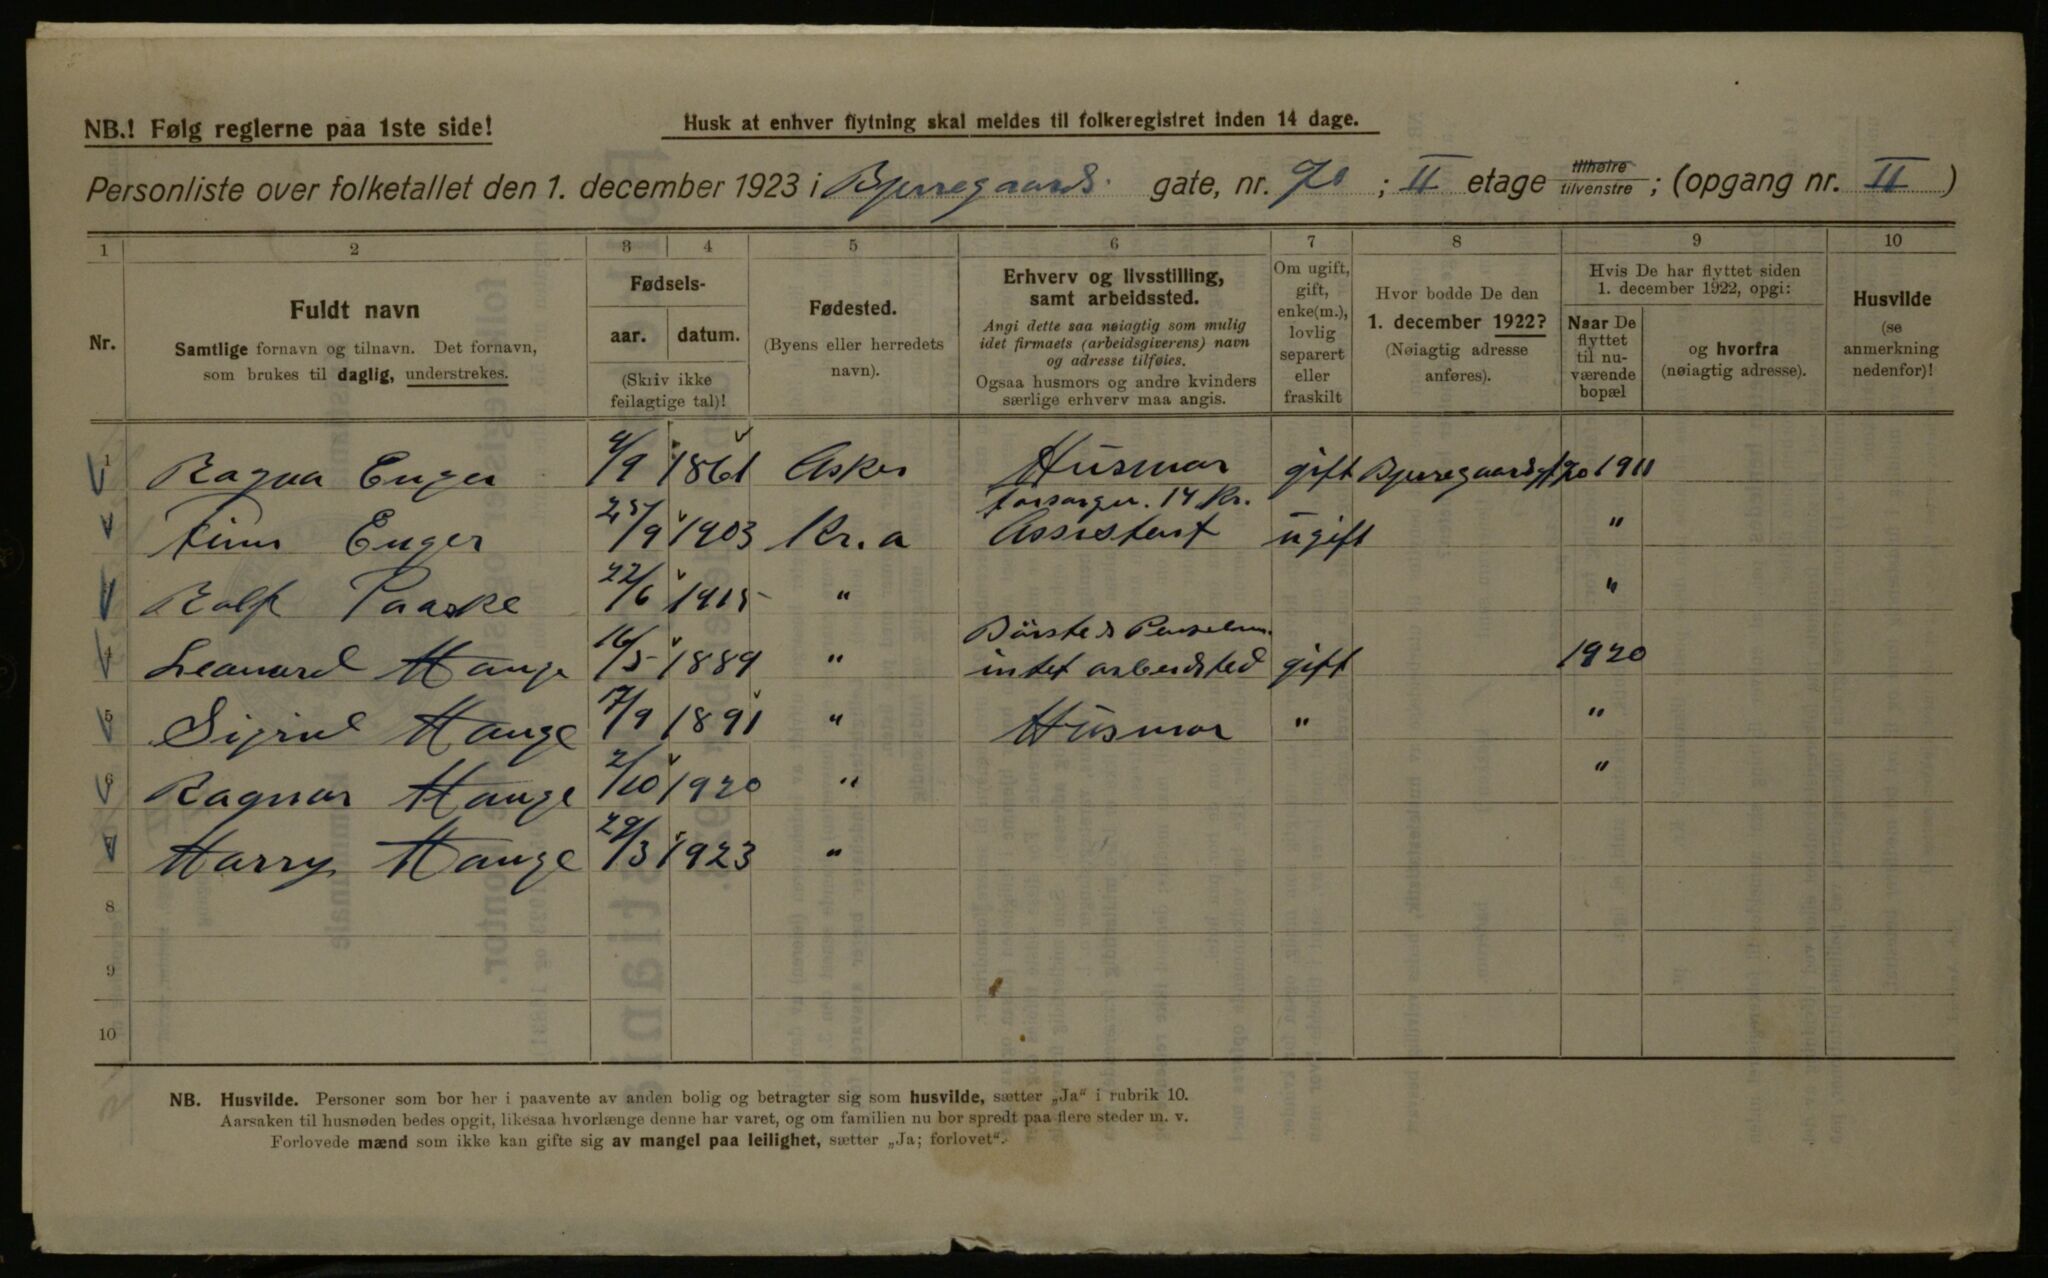 NB.! Følg reglerne paa 1ste side!
Husk at enhver flytning skal meldes til folkeregistret inden 14 dage.
Personliste over folketallet den 1. december 1923 i Bjerregaards gate, nr. 70 ; II etage tilhøire tilvenstre ; (opgang nr. II )
1 2 3 4 5 6 7 8 9 10
Nr.
Fuldt navn
Samtlige fornavn og tilnavn. Det fornavn,
som brukes til daglig, understrekes.
Fødsels-
aar. datum.
(Skriv ikke
feilagtige tal)!
Fødested.
(Byens eller herredets
navn).
Erhverv og livsstilling,
samt arbeidssted.
Angi dette saa nøiagtig som mulig
idet firmaets (arbeidsgiverens) navn
og adresse tilføies.
Ogsaa husmors og andre kvinders
særlige erhverv maa angis.
Om ugift,
gift,
enke(m.),
lovlig
separert
eller
fraskilt
Hvor bodde De den
1. december 1922?
(Nøiagtig adresse
anføres).
Hvis De har flyttet siden
1. december 1922, opgi:
Naar De
flyttet
til nu-
værende
bopæl
og hvorfra
(nøiagtig adresse).
Husvilde
(se
anmerkning
nedenfor)!
1 Ragna Enger 4/9 1861 Asker Husmor gift Bjerregaardsgt 70 1911
forsørger. 14 Kr.
Finn Enger 25/9 1903 Kr.a Assistent ugift "
Rolf Paaske 22/6 1915 " "
Børste &
4 Leonard Hauge 16/5 1889 " intet arbeidsted gift 1920
5 Sigrid Hauge 17/9 1891 " Husmor " "
6 Ragnar Hauge 2/10 1920 " "
7 Harry Hauge 29/3 1923 "
8
9
10
NB. Husvilde. Personer som bor her i paavente av anden bolig og betragter sig som husvilde, sætter „Ja“ i rubrik 10.
Aarsaken til husnøden bedes opgit, likesaa hvorlænge denne har varet, og om familien nu bor spredt paa flere steder m. v.
Forlovede mænd som ikke kan gifte sig av mangel paa leilighet, sætter „Ja; forlovet“.